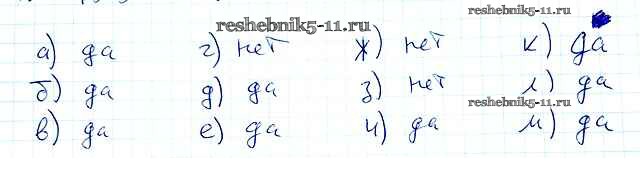 reshebnik5-11.ru
а) да г) нет ж) нет к) да
б) да д) да з) нет л) да
reshebnik5-11.ru
в) да е) да и) да м) да